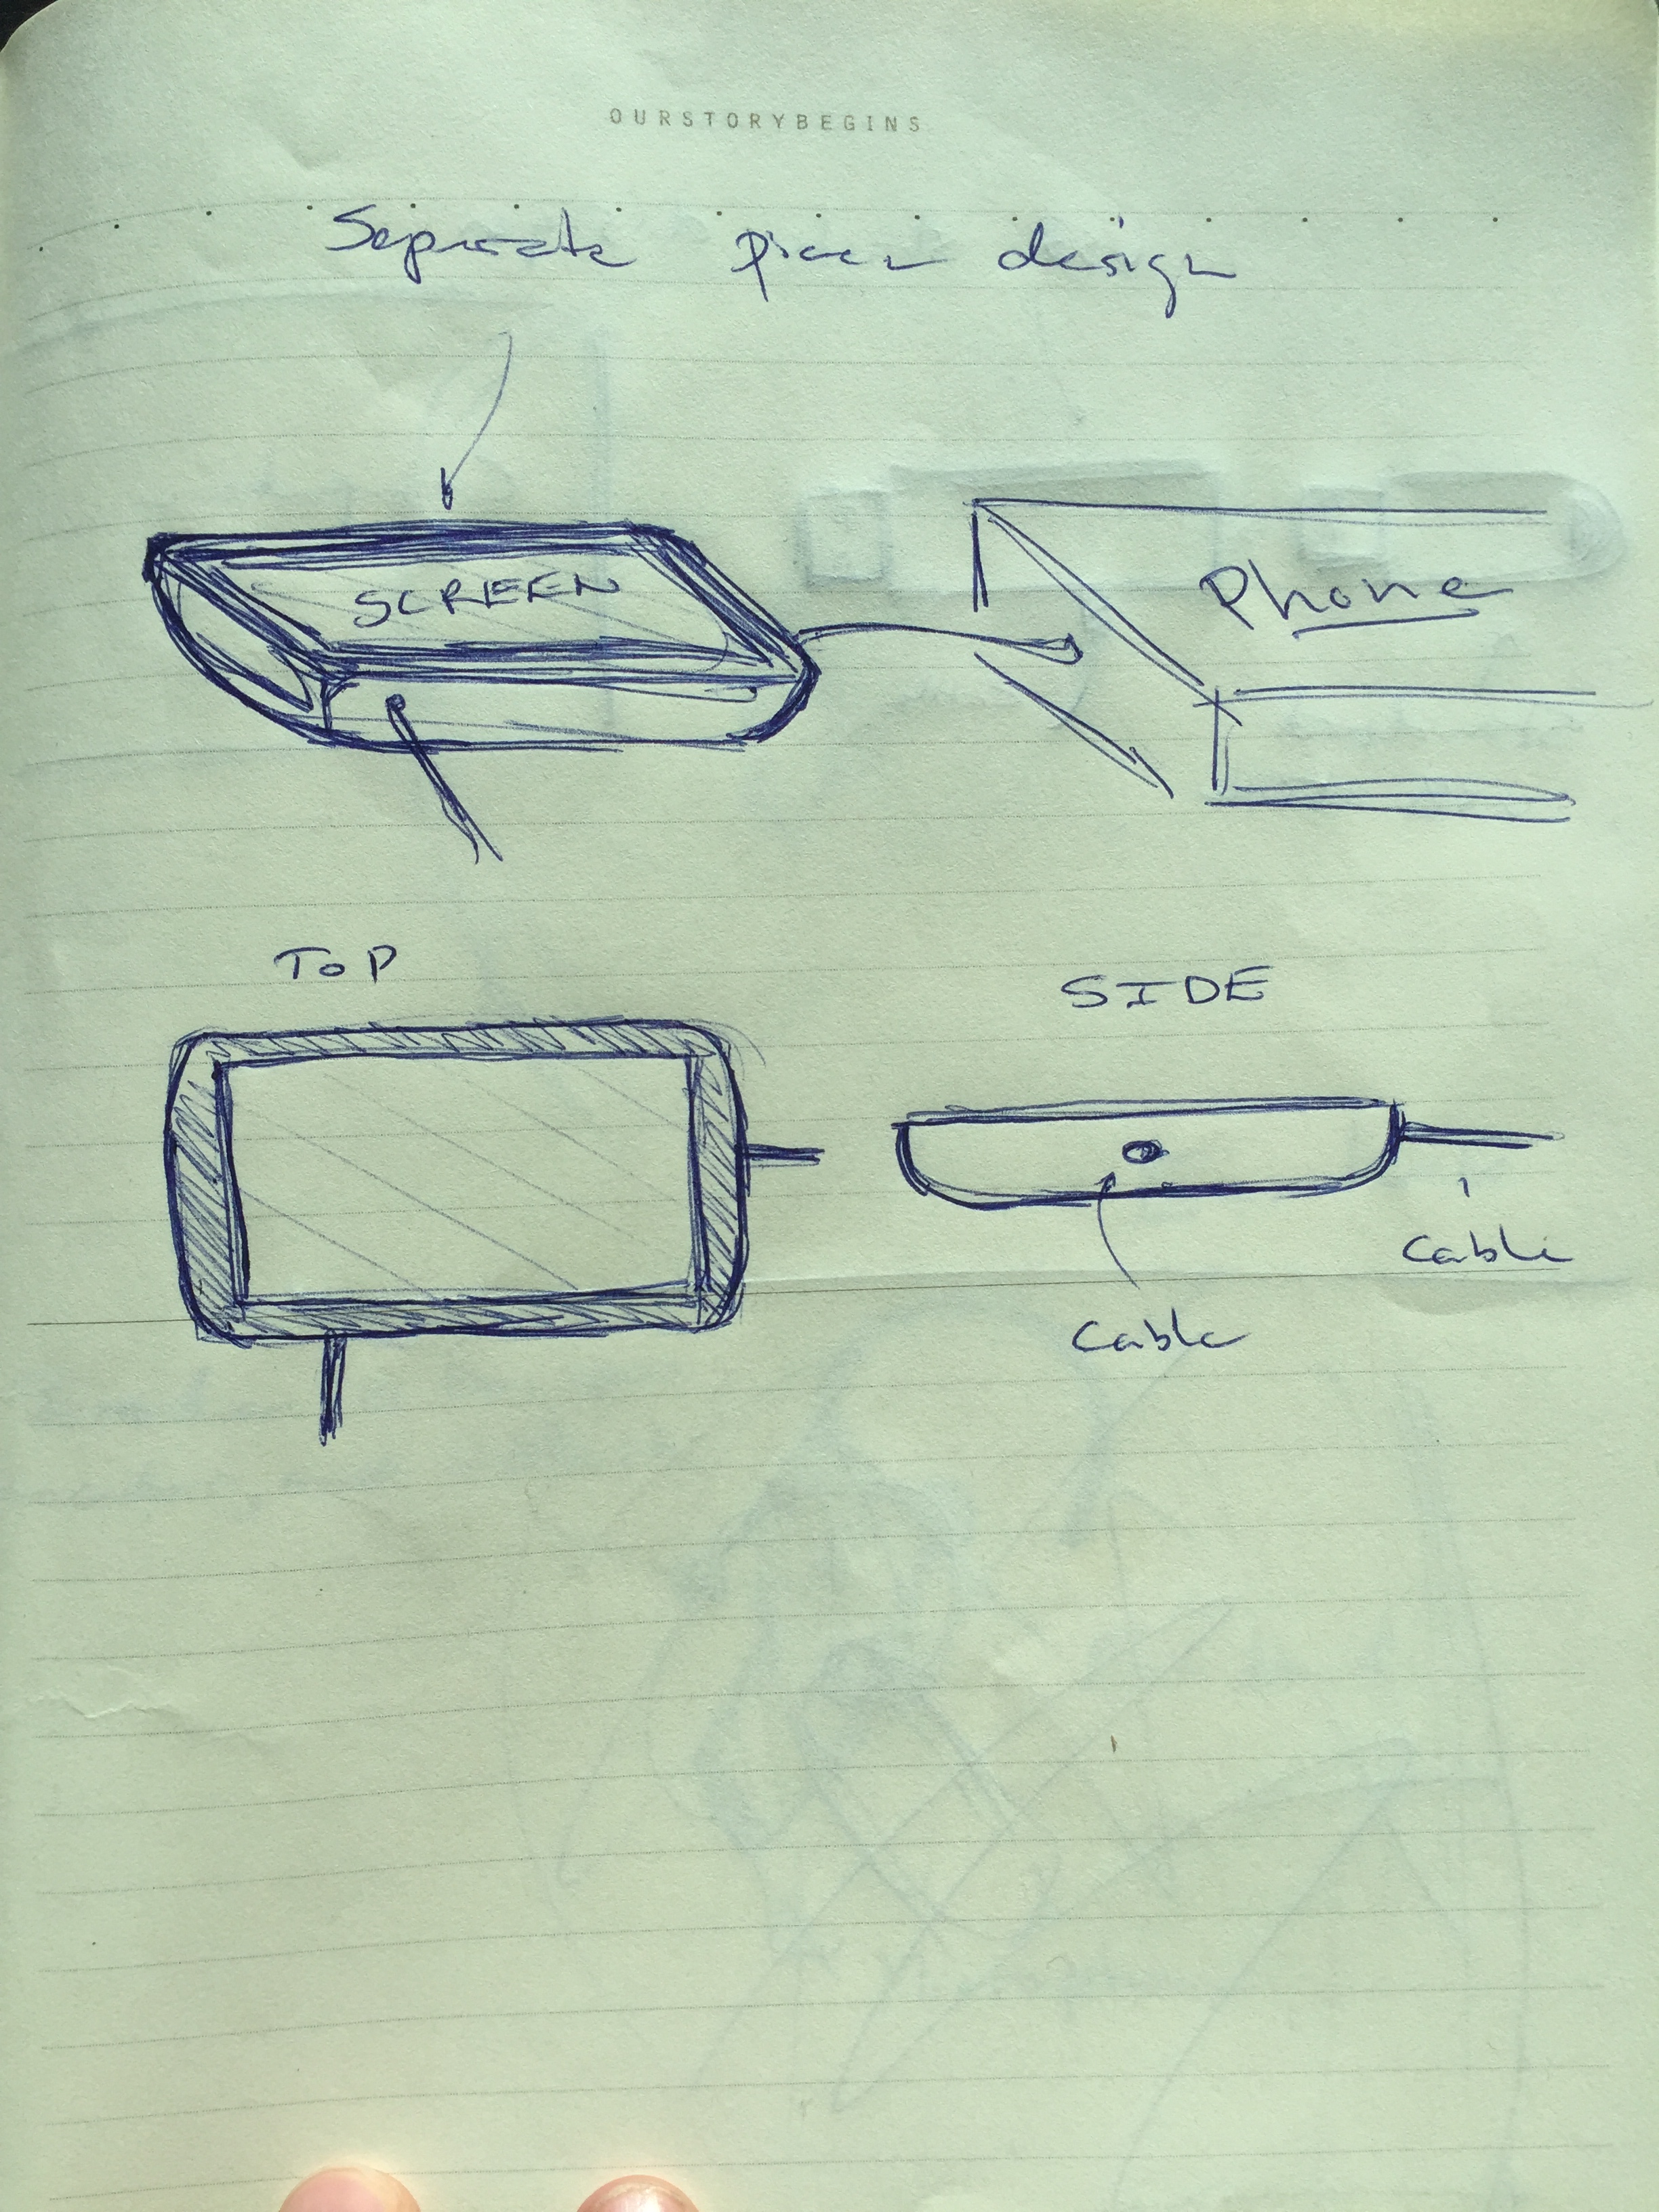 OURSTORYBEGINS
Separate piece design
SCREEN
Phone
TOP
SIDE
Cable
Cable